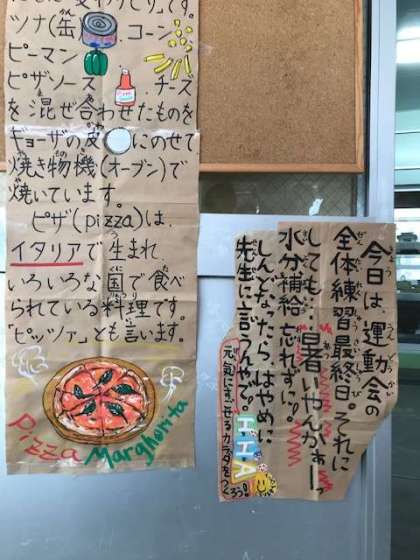 ツナ(缶) コーン
ピーマン
ピザソース チーズ
を混ぜ合わせたものを
ギョーザの皮 にのせて
焼き物機(オーブン)で
焼いています。
ピザ(pizza)は、
イタリアで生まれ
いろいろな国で食べ
られている料理です。
「ピッツァ」とも言います。
Pizza
Margherita
今日は、運動会の
全体練習最終日。それに
しても…暑いやんかぁーっ
水分補給忘れずに!
しんどなったら、はやめに
先生に言うんやで!
元気にすごせるカラダをつくろう!